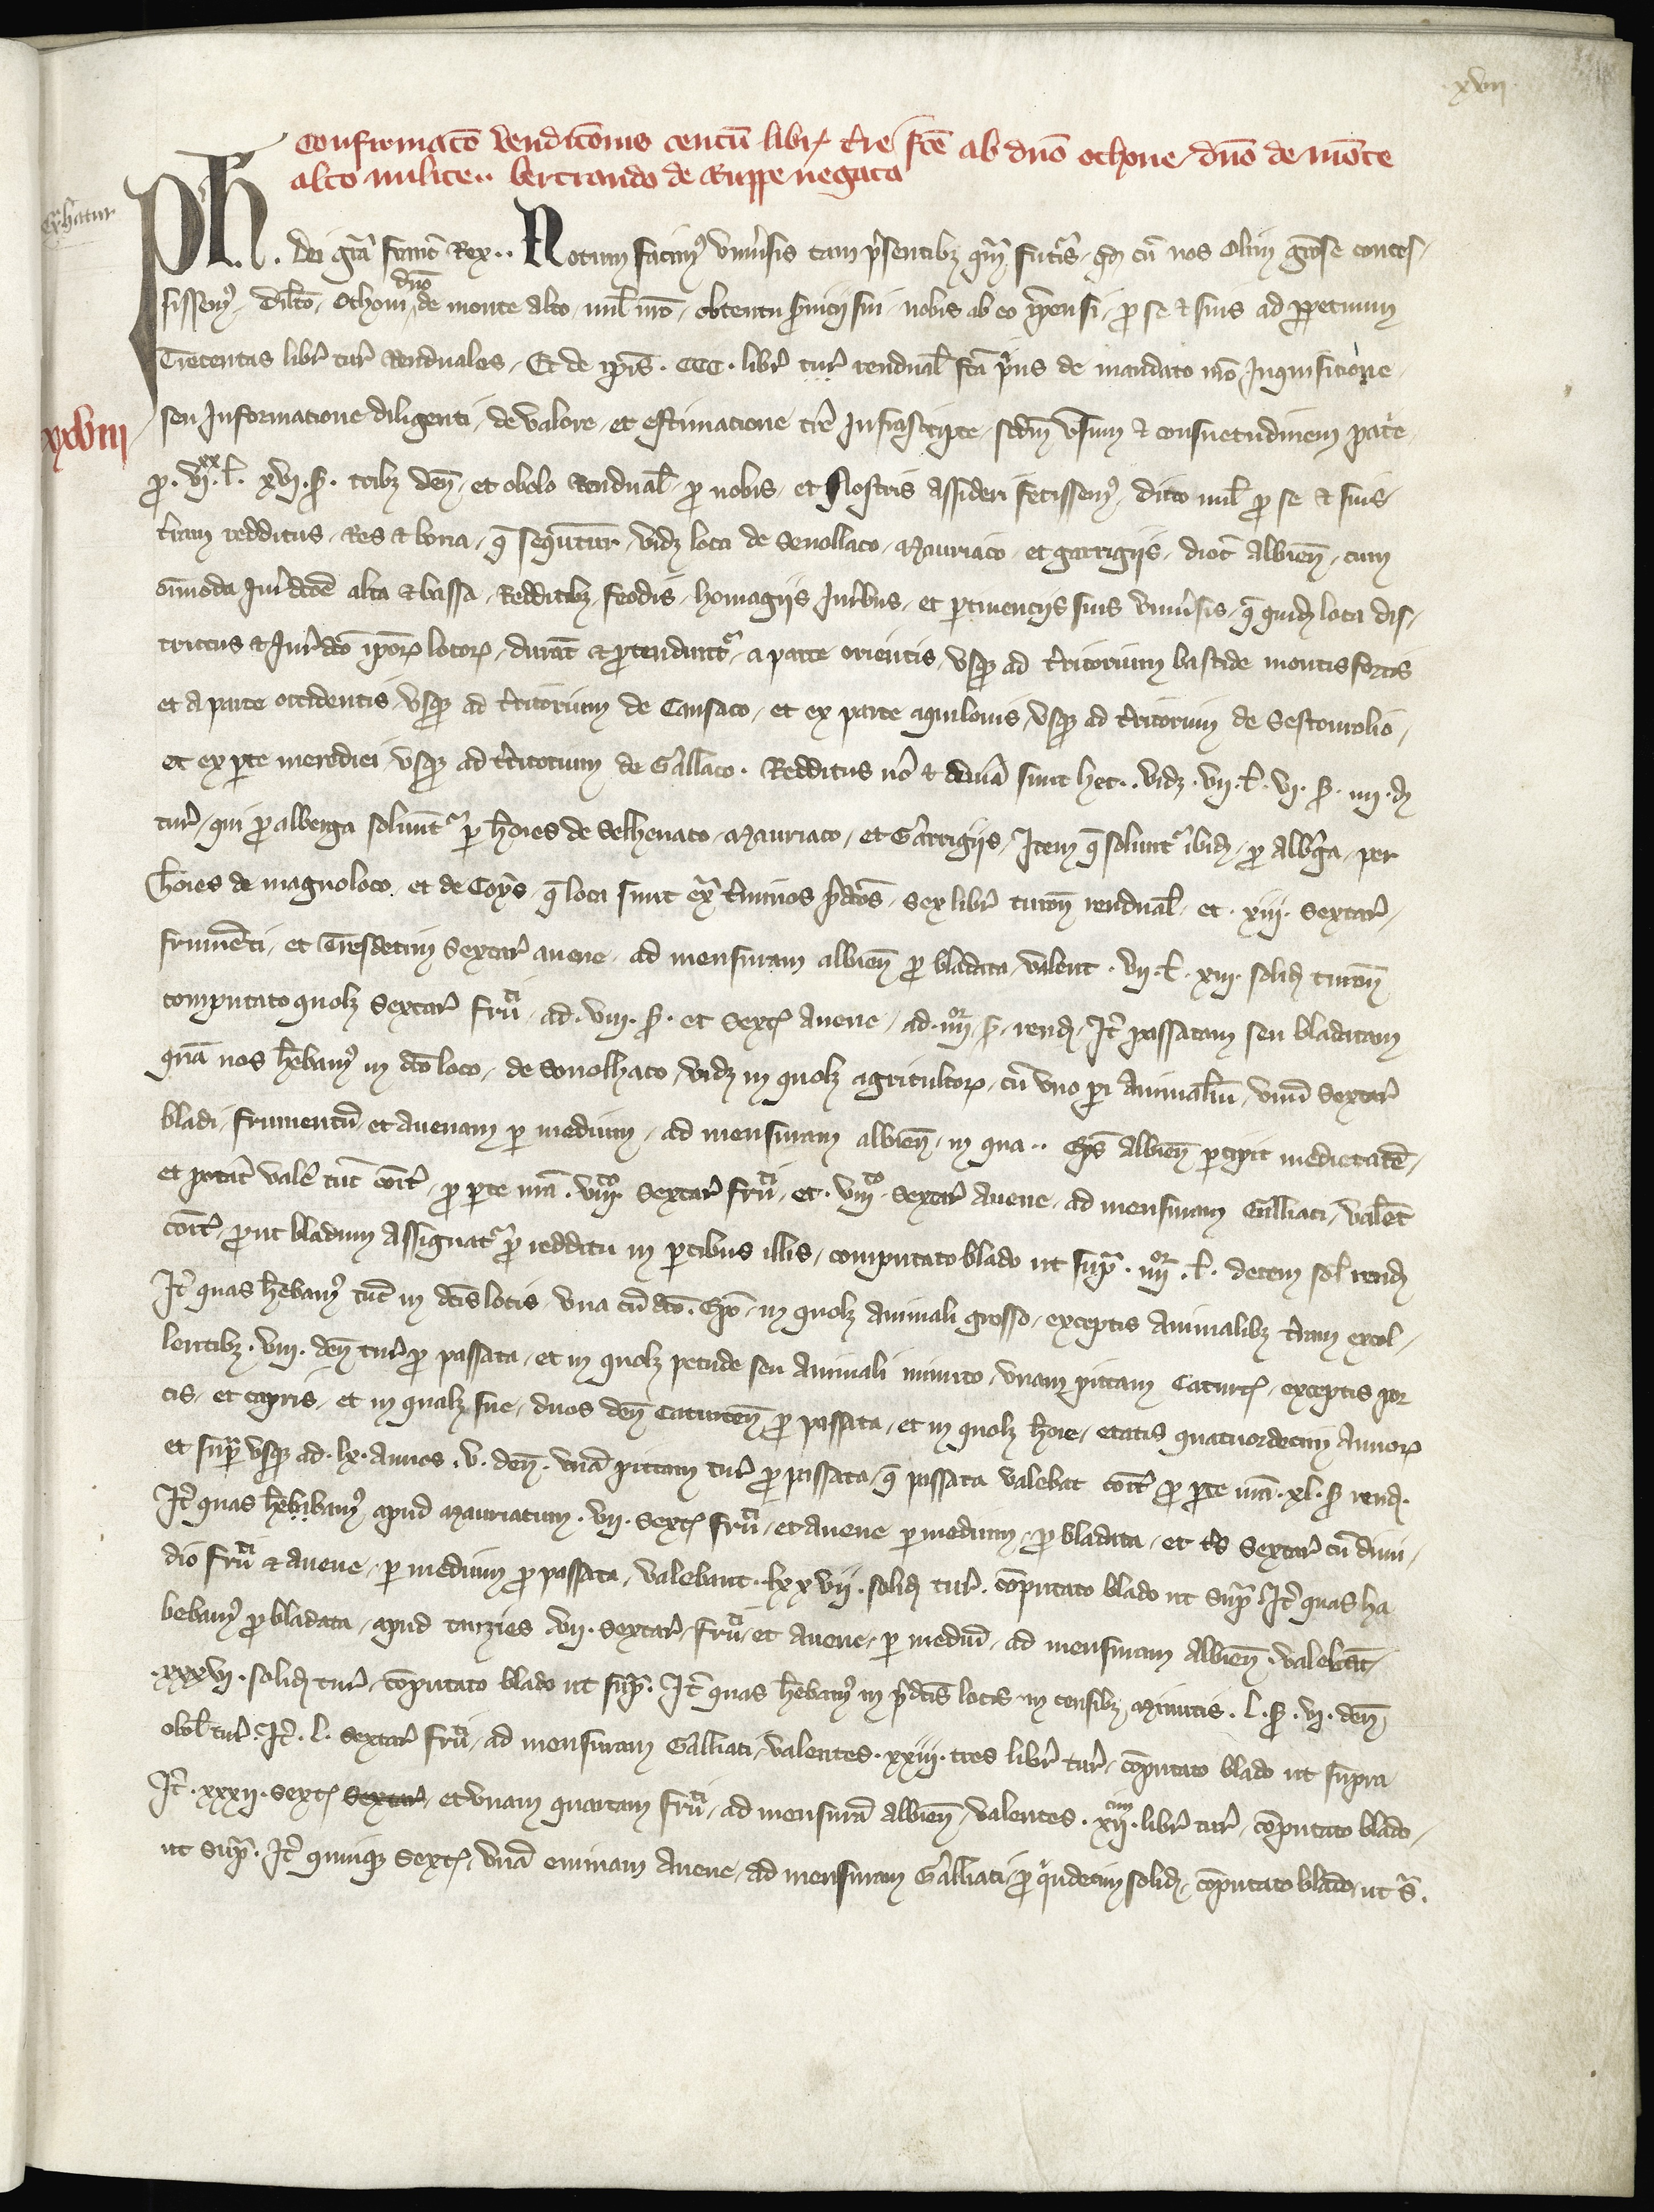 xvii
Confirmatõ vendicõnis centũ libr t̃re fc̃e ab dño othone dño de mõte
alto milite .. bertrando de Ruppe negata
Exhatur
Ph̃. dei grã franc̃ Rex .. Notum facim9 vniũsis tam p̃sentibz qm̃ futur̃ qd cũ nos olim grõse conces-
sissem9 dilc̃o Othoni dño de monte alto mil̃ nr̃o obtentu serũicij sui nobis ab eo ip̃ensi pro se et suis ad perpetuum
Trecentas libr̃ tur̃ Renduales Et de ip̃is . CCC . libr̃ tur̃ rendual̃ fc̃a prius de mandato nr̃o Inquisitione
xxviii
seu Informatione diligenti de valore et estimatione tr̃e Infrascripte scdm̃ vsum et consuetudinem patr̃e
pro . vi xx . l̃ . xvi . s̃ . tribz den̄ et obolo Rendual̃ pro nobis et Nostris assideri fecissem9 dicto mil̃ pro se et suis
t̃ram redditus Res et bona q̃ sequũtur vidz loca de Senollaco Mauriaco et garrigijs dioc̃ Albien̄ cum
oĩmoda Iur̃dc̃õe alta et bassa Redditibz feodis homagijs Iur̃ibus et pertinencijs suis vniũsis q̃ quid̃ loca dis-
trictus et Iur̃dc̃õ ip̃or locor durãt et protendunt̃ a parte orientis vsqz ad t̃ritorium bastide montisfortis
et a parte occidentis vsqz ad t̃ritorium de Causaco et ex parte aquilonis vsqz ad t̃ritorium de Sestourolio
et ex pte meridiei vsqz ad t̃ritorium de Galliaco . Redditus ũo et deũia sunt hec .. vidz . vii . l̃ . vi . s̃ . iiii . d̃
tur̃ qui pro alberga soluunt̃ per hões de Selhenaco Mauriaco et Garrigijs Item q̃ solunt̃ ibid̃ pro Albg̃a per
hões de magnoloco et de Coys q̃ loca sunt ext̃ t̃minos p̃dc̃õs sex libr̃ turon̄ rendual̃ et . xiii . sextar̃
frumẽti et Tresdecim Sextar̃ auene ad mensuram albien̄ pro bladata valent . vii . l̃ . xiii . solid̃ turon̄
computato quolz Sextar̃ fru ti ad . viii . s̃ . et Sext̃ Auene ad . iiii or . s̃ . rend̃ It̃ passatam seu bladatam
quã nos hẽbam9 in dc̃o loco de Senolhaco vidz in quolz agricultor cũ vno pari Animaliũ vnũ Sextar̃
bladi frumentũ et auenam per medium ad mensuram albien̄ in qua .. Ep̃s Albien̄ percipit medietatẽ
et potãt valẽ tũc com̃t̃ pro pte nr̃a . viii to . Sextar̃ fru ti et . viii to . Sextar̃ Auene ad mensuram Galliaci valẽt
com̃t̃ prout bladum Assignat̃ pro redditu in partibus illis computato blado ut supra . iiii or . l̃ . decem sol̃ rend̃
It̃ quas hẽbam9 tũc in dc̃is locis vna cũ dc̃o . Ep̃o in quolz Animali grosso exceptis Animalibz t̃ram excol-
lentibz . viii . den̄ tur̃ pro passata et in quolz pecude seu Animali minuto vnam pictam Caturc̃ exceptis por
cis et capris et in qualz sue duos den̄ Caturcen̄ pro passata et in quolz hõie etatis quatuordecim Annor
et supra vsqz ad . lx . Annos . v . den̄ . vnã pictam tur̃ pro passata q̃ passata valebat com̃t̃ pro pte nr̃a . xl . s̃ rend̃ .
It̃ quas hẽbibam9 apud Mauriacum . vii . Sext̃ fru ti et auene per medium pro bladata et tr̃s Sextar̃ cũ dimi-
dio fru ti et auene per medium pro passata valebant . lxxvii . solid̃ tur̃ . cõputato blado ut supra It̃ quas ha
bebam9 pro bladata apud tauzies vii . Sextar̃ fru ti et Auene per mediũ ad mensuram Albien̄ . valebãt
. xxxvi . solid̃ tur̃ cõputato blado ut supra . It̃ quas hẽbam9 in p̃dc̃is locis in censibz Minutis . l . s̃ . vi . den̄
obol̃ tur̃ . It̃ . l . Sextar̃ fru ti ad mensuram Galliaci valentes . xxiii . tres libr̃ tur̃ cõputato blado ut supra
It̃ . xxxii . Sext̃ Sextar̃ et vnam quartam fru ti ad mensurã Albien̄ valentes . xii cim . libr̃ tur̃ cõputato blado
ut supra . It̃ quinqz Sext̃ vnã eminam Auene ad mensuram Galliaci pro q̃ndecim solid̃ cõputato blado ut s̃ .